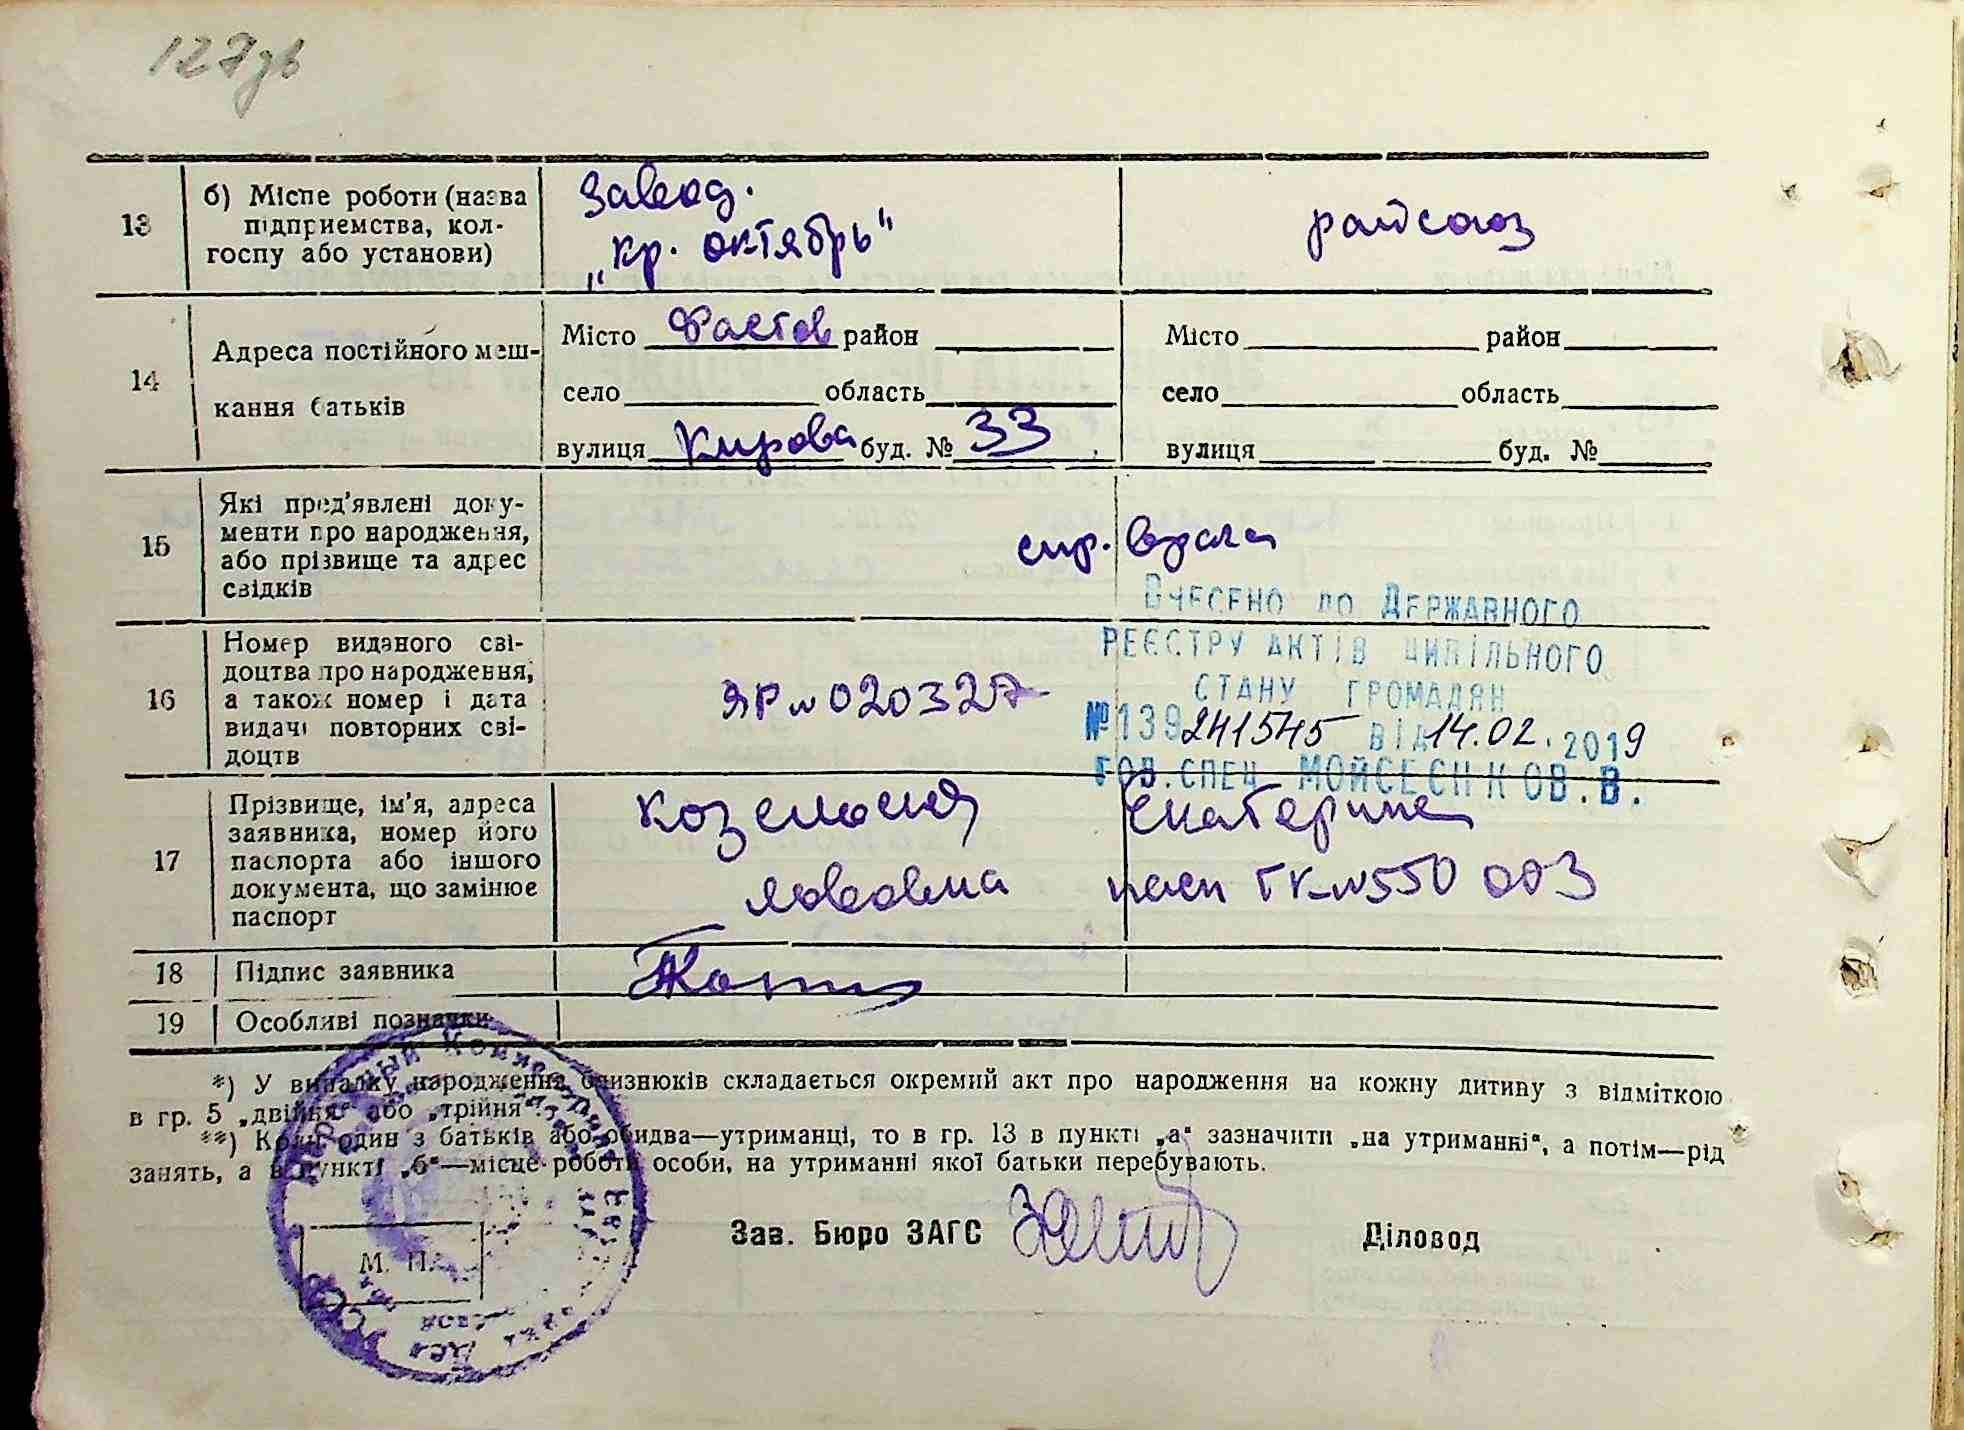 127зв
13
б) Місце роботи (назва
підприємства, кол-
госпу або установи)
завод.
„Кр. октябрь"
райсоюз
14
Адреса постійного меш-
кання батьків
Місто Фастов район
село область
вулиця Кирова буд. № 33
Місто район
село область
вулиця буд. №
15
Які пред'явлені доку-
менти про народження,
або прізвище та адрес
свідків
спр. врача
16
Номер виданого сві-
доцтва про народження,
а також номер і дата
видачі повторних сві-
доцтв
ЯР № 020327
Внесено до Державного
реєстру актів цивільного
стану громадян
№ 139241545 від 14.02.2019
Гол. спец
17
Прізвище, ім'я, адреса
заявника, номер його
паспорта або іншого
документа, що замінює
паспорт
Екатерина
пасп ГК № 550 003
18
Підпис заявника
19
Особливі позначки
*) У випадку народження близнюків складається окремий акт про народження на кожну дитину з відміткою
в гр. 5 „двійня" або „трійня".
**) Коли один з батьків або обидва—утриманці, то в гр. 13 в пункті „а" зазначити „на утриманні", а потім—рід
занять, а в пункті „б"—місце роботи особи, на утриманні якої батьки перебувають.
Зав. Бюро ЗАГС
Діловод
М. П.